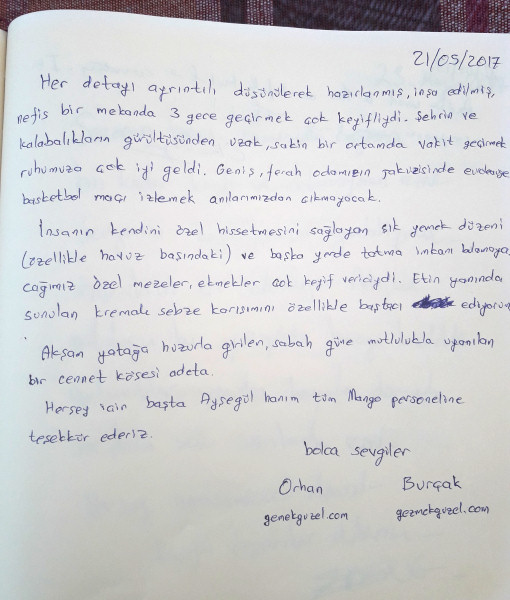 21/05/2017
Her detayı ayrıntılı düşünülerek hazırlanmış, inşa edilmiş,
nefis bir mekanda 3 gece geçirmek çok keyifliydi. Şehrin ve
kalabalıkların gürültüsünden uzak, sakin bir ortamda vakit geçirmek
ruhumuza çok iyi geldi. Geniş, ferah odamızın jakuzisinde
basketbol maçı izlemek anılarımızdan çıkmayacak.
İnsanın kendini özel hissetmesini sağlayan şık yemek düzeni
(özellikle havuz başındaki) ve başka yerde tatma imkanı bulamaya
cağımız özel mezeler, ekmekler çok keyif vericiydi. Etin yanında
sunulan kremalı sebze karışımını özellikle baştacı ediyorum
Akşam yatağa huzurla girilen, sabah güne mutlulukla uyanılan
bir cennet köşesi adeta.
Herşey için başta Ayşegül hanım tüm Mango personeline
teşekkür ederiz.
bolca sevgiler
Orhan Burçak
gezmekguzel.com